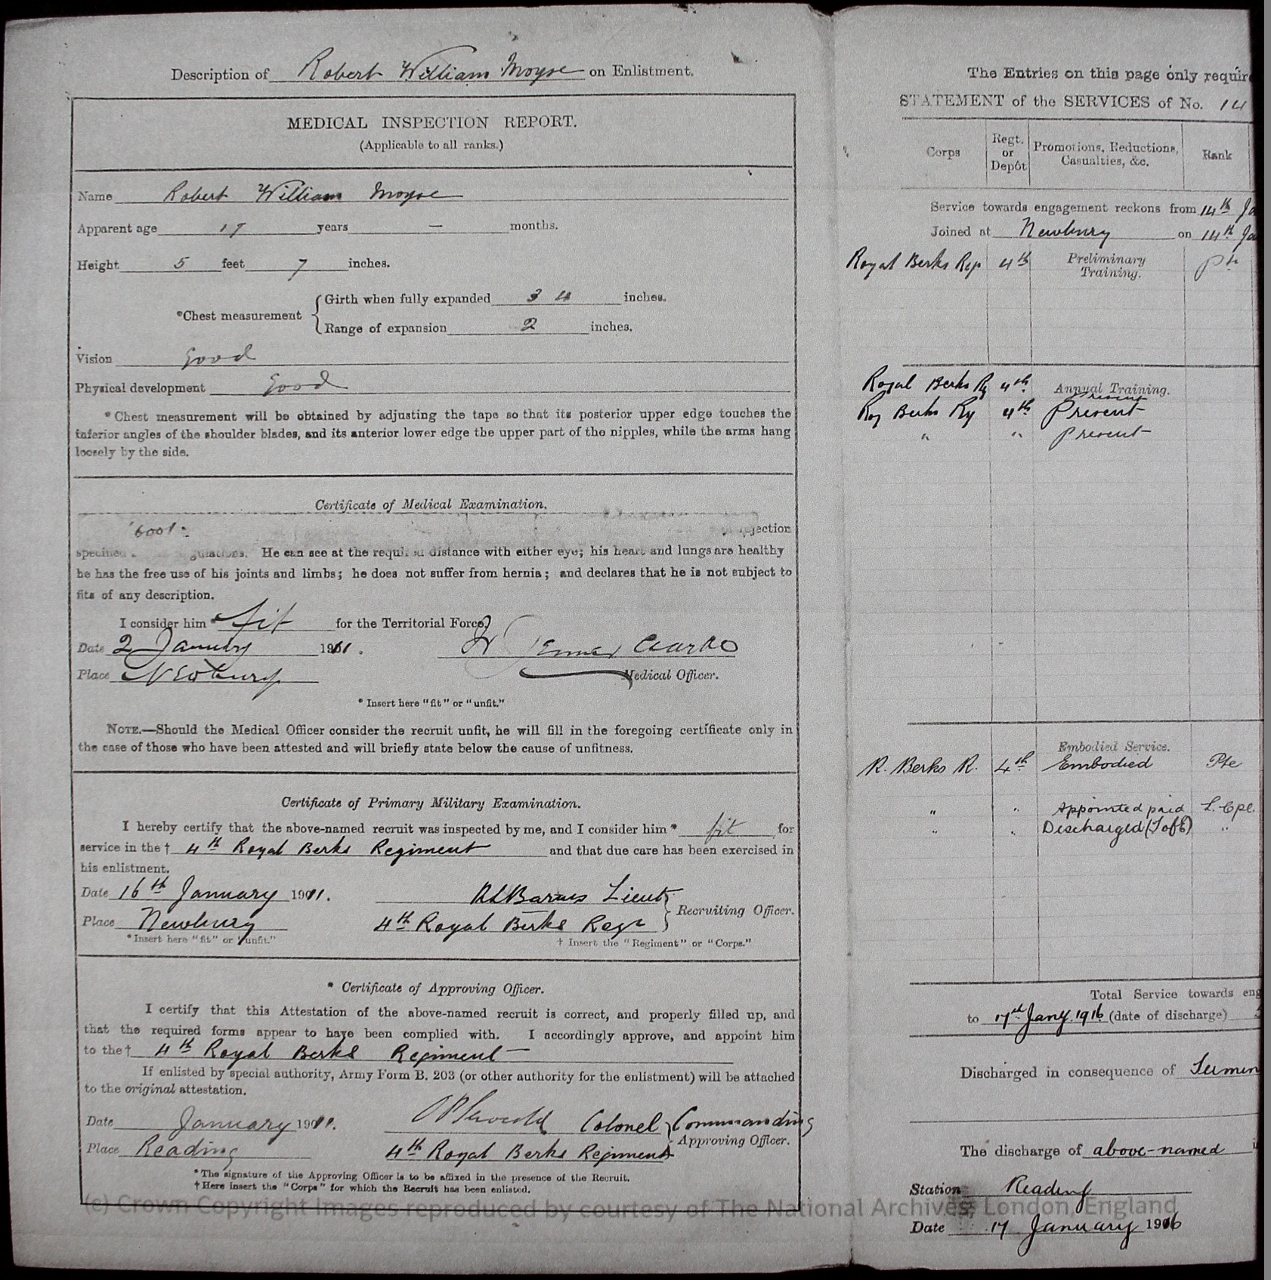 Description of Robert William Moyse on Enlistment.
MEDICAL INSPECTION REPORT.
(Applicable to all ranks.)
Name Robert William Moyse
Apparent age 17 years — months.
Height 5 feet 7 inches.
*Chest measurement
Girth when fully expanded 34 inches.
Range of expansion 2 inches.
Vision Good
Physical development Good
* Chest measurement will be obtained by adjusting the tape so that its posterior upper edge touches the
inferior angles of the shoulder blades, and its anterior lower edge the upper part of the nipples, while the arms hang
loosely by the side.
Certificate of Medical Examination.
He can see at the required distance with either eye; his heart and lungs are healthy
he has the free use of his joints and limbs; he does not suffer from hernia; and declares that he is not subject to
fits of any description.
I consider him * fit for the Territorial Force.
Date 2 January 1911.
Place Newbury
Medical Officer.
* Insert here "fit" or "unfit."
NOTE.—Should the Medical Officer consider the recruit unfit, he will fill in the foregoing certificate only in
the case of those who have been attested and will briefly state below the cause of unfitness.
Certificate of Primary Military Examination.
I hereby certify that the above-named recruit was inspected by me, and I consider him * fit for
service in the † 4th Royal Berks Regiment and that due care has been exercised in
his enlistment.
Date 16th January 1911. Lieut
Place Newbury 4th Royal Berks Regt Recruiting Officer.
* Insert here "fit" or "unfit." † Insert the "Regiment" or "Corps."
* Certificate of Approving Officer.
I certify that this Attestation of the above-named recruit is correct, and properly filled up, and
that the required forms appear to have been complied with. I accordingly approve, and appoint him
to the † 4th Royal Berks Regiment
If enlisted by special authority, Army Form B. 203 (or other authority for the enlistment) will be attached
to the original attestation.
Date January 1911. Colonel Commanding
Place Reading 4th Royal Berks Regiment Approving Officer.
* The signature of the Approving Officer is to be affixed in the presence of the Recruit.
† Here insert the "Corps" for which the Recruit has been enlisted.
The Entries on this page only require
STATEMENT of the SERVICES of No. 14
Corps
Regt. or Depôt
Promotions, Reductions, Casualties, &c.
Rank
Service towards engagement reckons from 14th Ja
Joined at Newbury on 14th Ja
Royal Berks Reg 4th Preliminary Training. Pte
Royal Berks Rg 4th Annual Training. Present
Roy Berks Rg 4th Present
" " Present
Embodied Service.
R. Berks R. 4th Embodied Pte
" " Appointed paid L. Cpl.
" " Discharged (T of E) "
Total Service towards eng
to 17th Jany. 1916 (date of discharge)
Discharged in consequence of Termin
The discharge of above-named
Station Reading
Date 17 January 1916
(c) Crown Copyright Images reproduced by courtesy of The National Archives, London, England